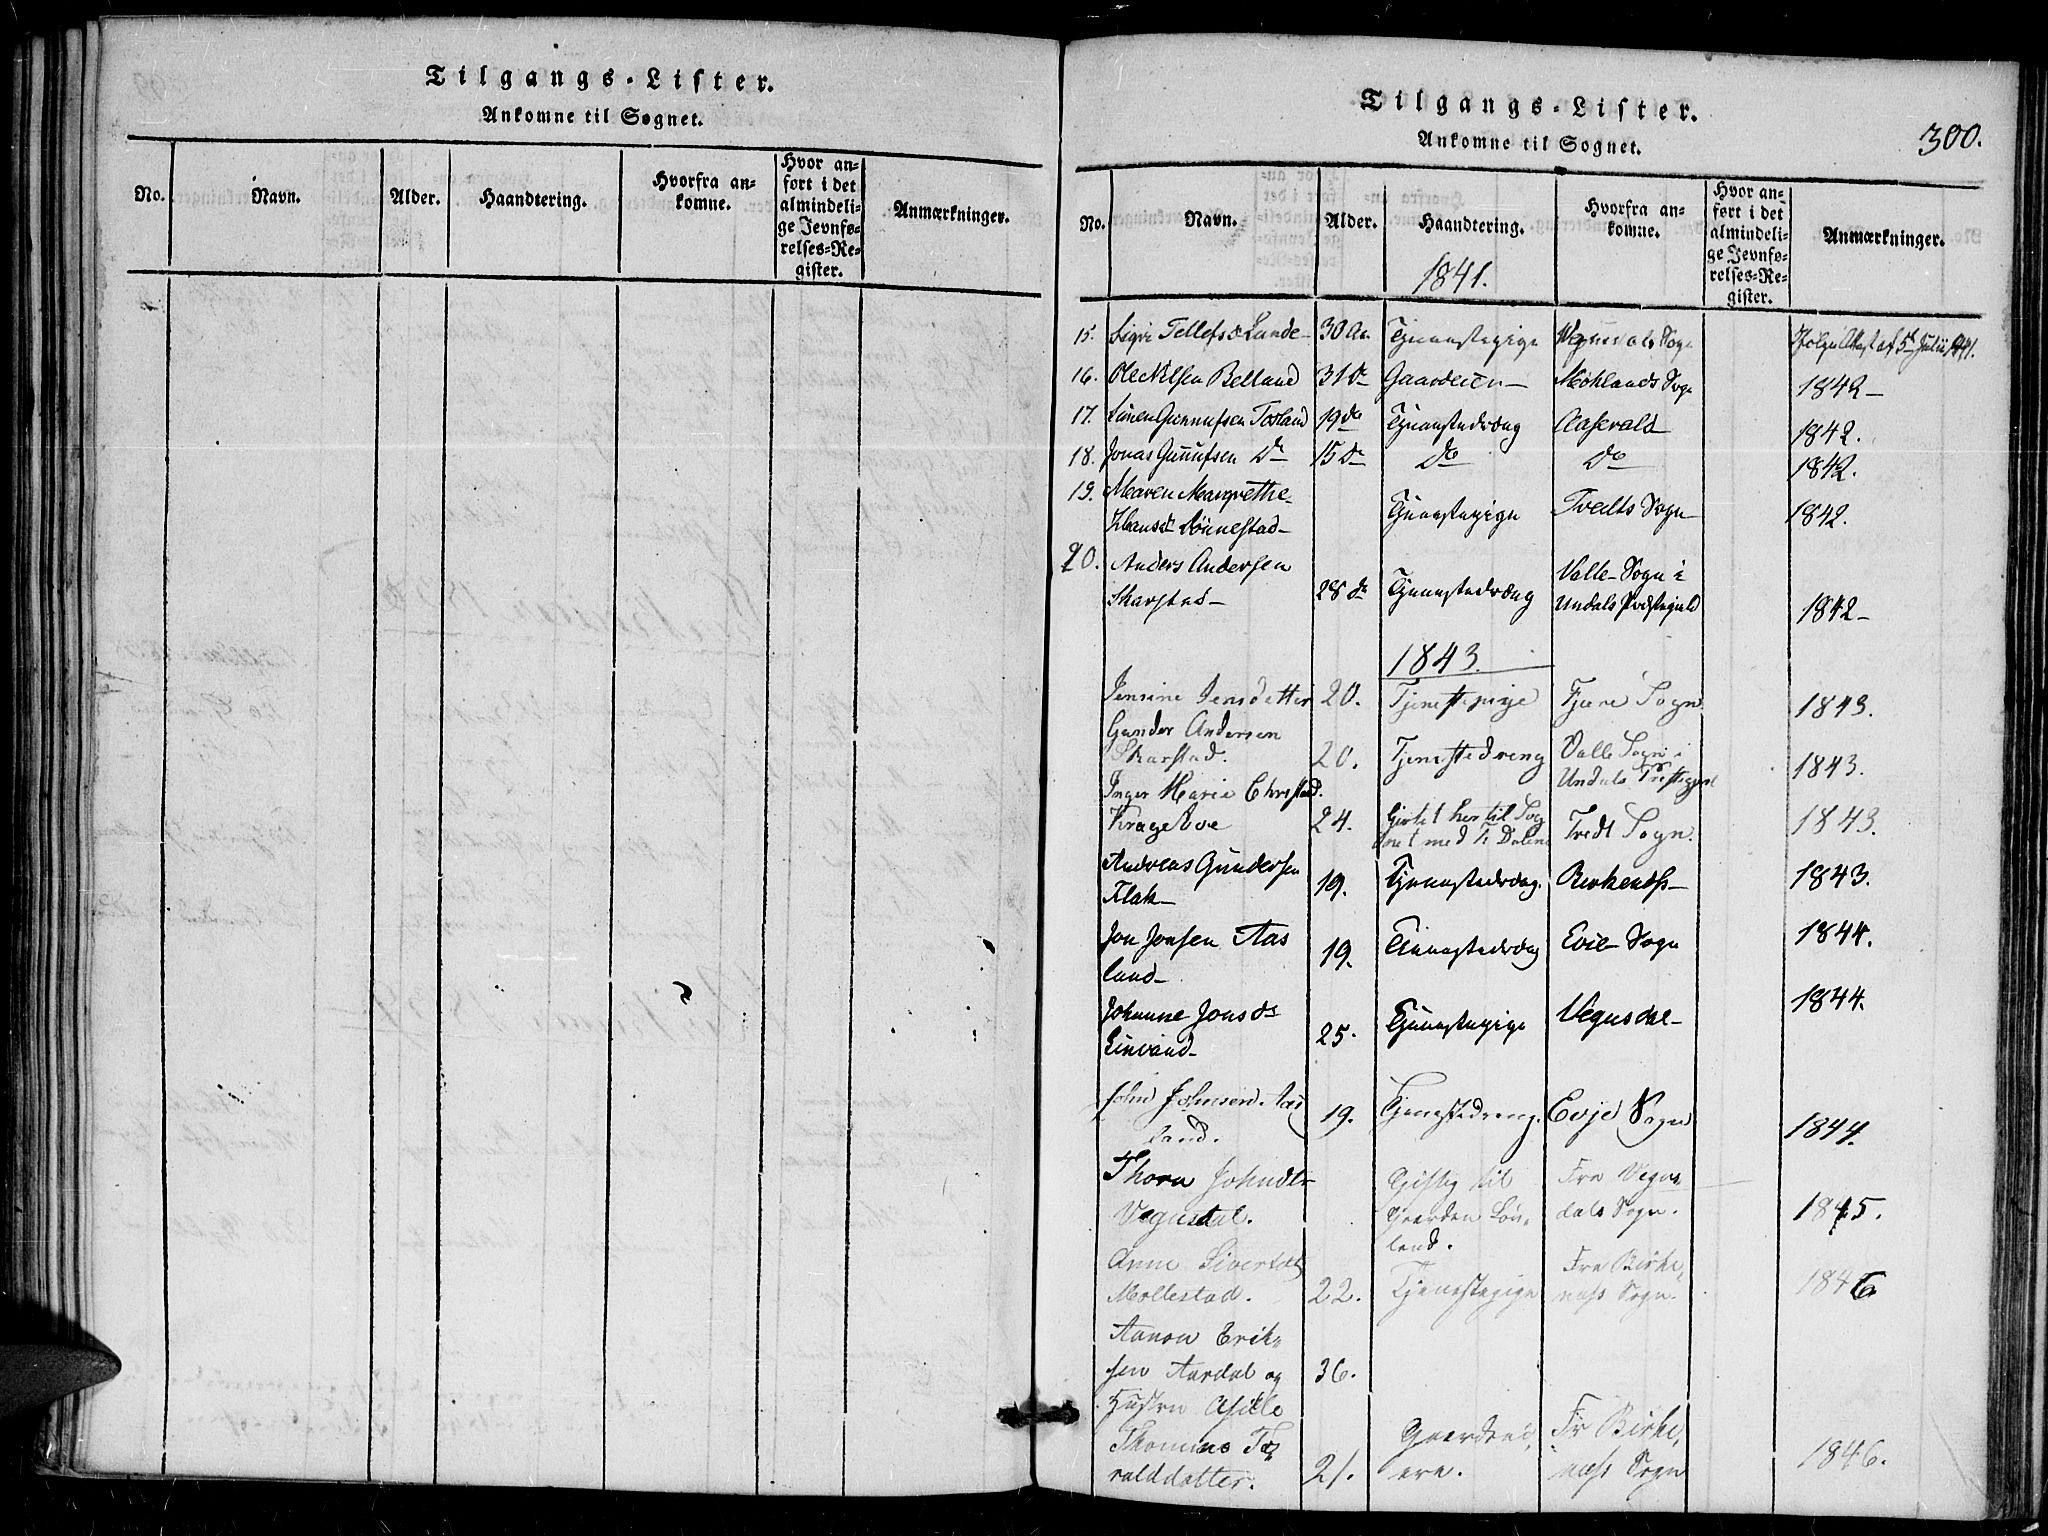 Tilgangs-Lister.
Ankomne til Sognet.
No.
Navn.
Alder.
Haandtering.
Hvorfra an-
komne.
Hvor an-
ført i det
almindeli-
ge Jevnfø-
relses-Re-
gister.
Anmærkninger.
Tilgangs-Lister.
Ankomne til Sognet.
300.
No.
Navn.
Alder.
Haandtering.
Hvorfra an-
komne.
Hvor an-
ført i det
almindeli-
ge Jevnfø-
relses-Re-
gister.
Anmærkninger.
1841.
15. Sigri Tellefsd Lande 30 Aar Tjenestepige Vegusdals Sogn Ifølge Attest af 5te Julii 1841.
16. Ole Nilsen Belland 31 do Gaardeier Møhlands Sogn 1842
17. Simen Gunnufsen Tosland 19 do Tjenestedreng Aaserald 1842.
18. Jonas Gunnufsen do 15 do do do 1842.
19. Maren Margrethe
Hansdt Rønnestad Tjenestepige Tvedts Sogn 1842.
20. Anders Andersen
Skarstad 28 do Tjenestedreng Valle Sogn i
Undals Præstegield 1842
1843.
Jensine Jensdatter 20. Tjenestepige Fjære Sogn 1843.
Gunder Andersen
Skarstad. 20. Tjenestedreng Valle Sogn i
Undals Præstegjeld 1843.
Inger Marie Christ
Krageboe 24. Giftet her til Sog
net med T. Dalen Tvedt Sogn. 1843.
Andreas Gundersen
Flak 19. Tjenestedreng. Berkenes 1843.
Jon Jonsen Aas
land 19. Tienestedreng Evie Sogn 1844.
Johanne Jonsdr
Linvand 25. Tjenestepige Vegusdal 1844.
John Johnsen Aas
land. 19. Tjenestedreng. Evje Sogn 1844.
Thora Johndtr
Vegusdal. Giftig til
Gaarden Løv-
land. Fra Vegus-
dals Sogn. 1845.
Anne Sivertdt
Mollestad. 22. Tjenestepige Fra Birke-
næss Sogn. 1846
Aanon Erik-
sen Aardal og 36.
Hustru Asille
Thomine To-
ralddatter. 21. Gaardei-
ere. Fr Birke-
næss Sogn 1846.